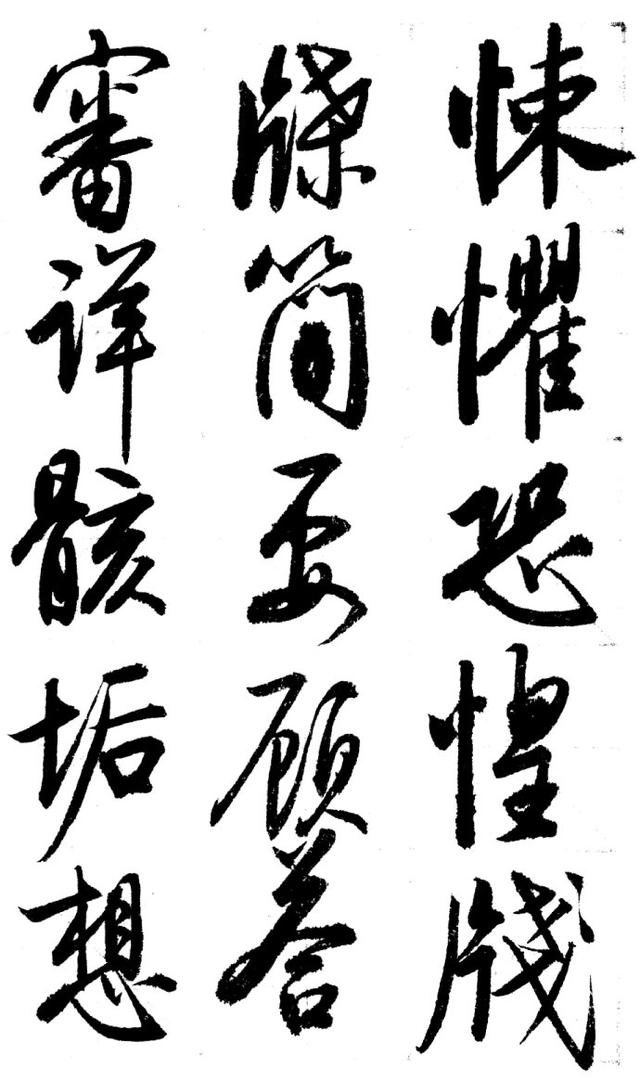 悚懼恐惶牋
牒简要顾答
審详骸垢想